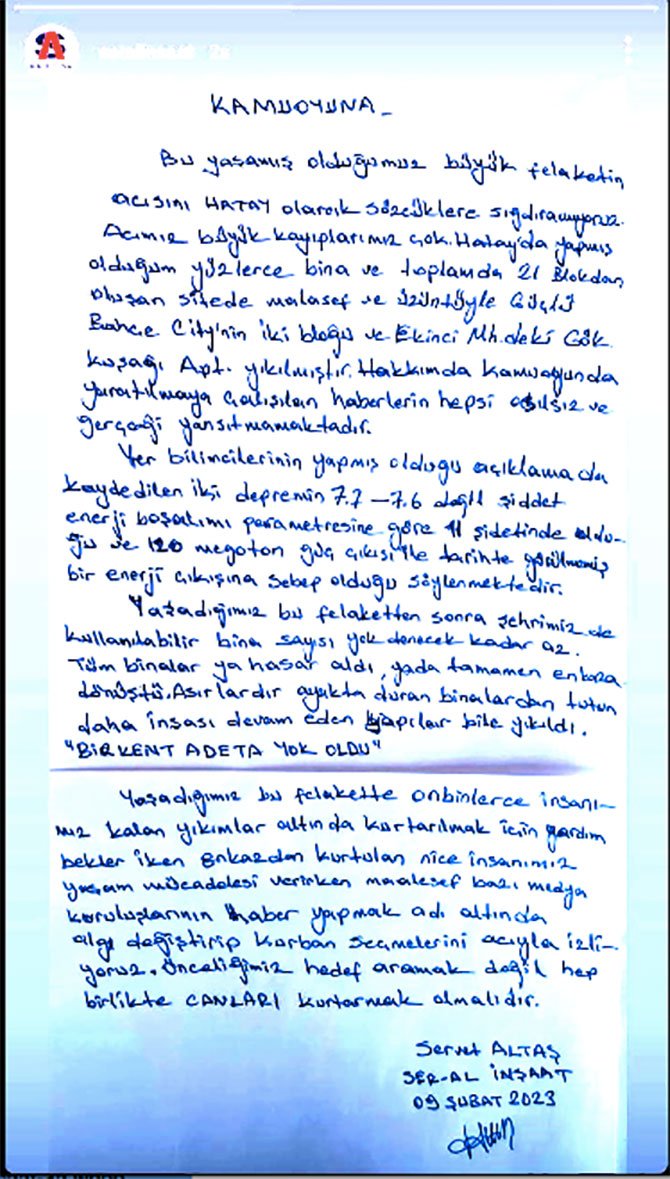 KAMUOYUNA_
Bu yaşamış olduğumuz büyük felaketin
acısını HATAY olarak sözcüklere sığdıramıyoruz.
Acımız büyük kayıplarımız çok. Hatay'da yapmış
olduğum yüzlerce bina ve toplamda 21 Blokdan
oluşan sitede malasef ve üzüntüyle Güçlü
Bahçe City'nin iki bloğu ve Ekinci Mh.deki Gök
kuşağı Apt. yıkılmıştır. Hakkımda kamuoğunda
yaratılmaya çalışılan haberlerin hepsi asılsız ve
gerçeği yansıtmamaktadır.
Yer bilimcilerinin yapmış olduğu açıklamada
kaydedilen iki depremin 7.7 — 7.6 değil şiddet
enerji boşalımı parametresine göre 11 şidetinde oldu-
ğu ve 120 megaton güç çıkışı ile tarihte görülmemiş
bir enerji çıkışına sebep olduğu söylenmektedir.
Yaşadığımız bu felaketten sonra şehrimizde
kullanılabilir bina sayısı yok denecek kadar az.
Tüm binalar ya hasar aldı, yada tamamen enkaza
dönüştü. Asırlardır ayakta duran binalardan tutun
daha inşası devam eden yapılar bile yıkıldı.
"BİR KENT ADETA YOK OLDU"
Yaşadığımız bu felakette onbinlerce insanı-
mız kalan yıkımlar altında kurtarılmak için yardım
bekler iken enkazdan kurtulan nice insanımız
yaşam mücadelesi verirken maalesef bazı medya
kuruluşlarının haber yapmak adı altında
algı değiştirip kurban seçmelerini acıyla izli-
yoruz. Önceliğimiz hedef aramak değil hep
birlikte CANLARI kurtarmak olmalıdır.
Servet ALTAŞ
SER-AL İNŞAAT
09 ŞUBAT 2023